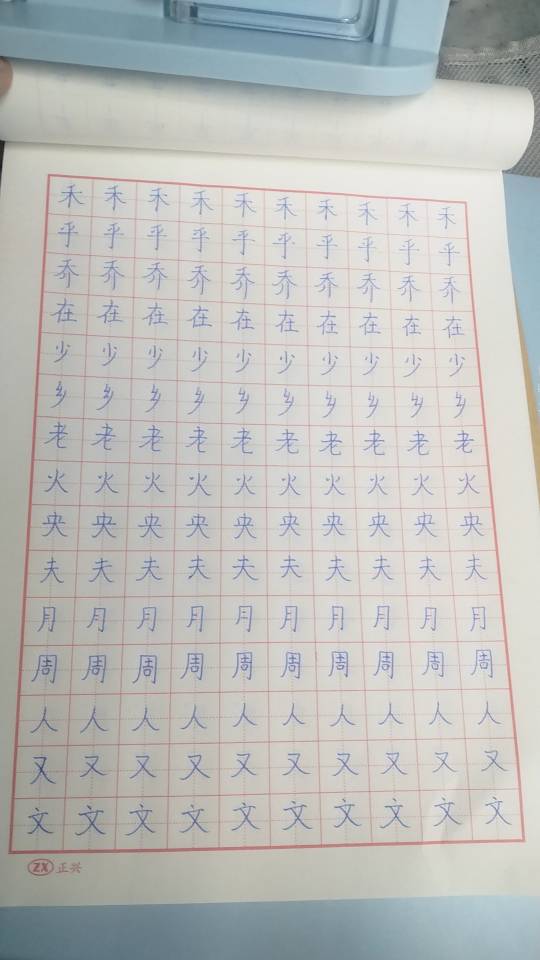 禾禾禾禾禾禾禾禾禾禾
乎乎乎乎乎乎乎乎乎乎
乔乔乔乔乔乔乔乔乔乔
在在在在在在在在在在
少少少少少少少少少少
乡乡乡乡乡乡乡乡乡乡
老老老老老老老老老老
火火火火火火火火火火
央央央央央央央央央央
夫夫夫夫夫夫夫夫夫夫
月月月月月月月月月月
周周周周周周周周周周
人人人人人人人人人人
又又又又又又又又又又
文文文文文文文文文文
ZX 正兴